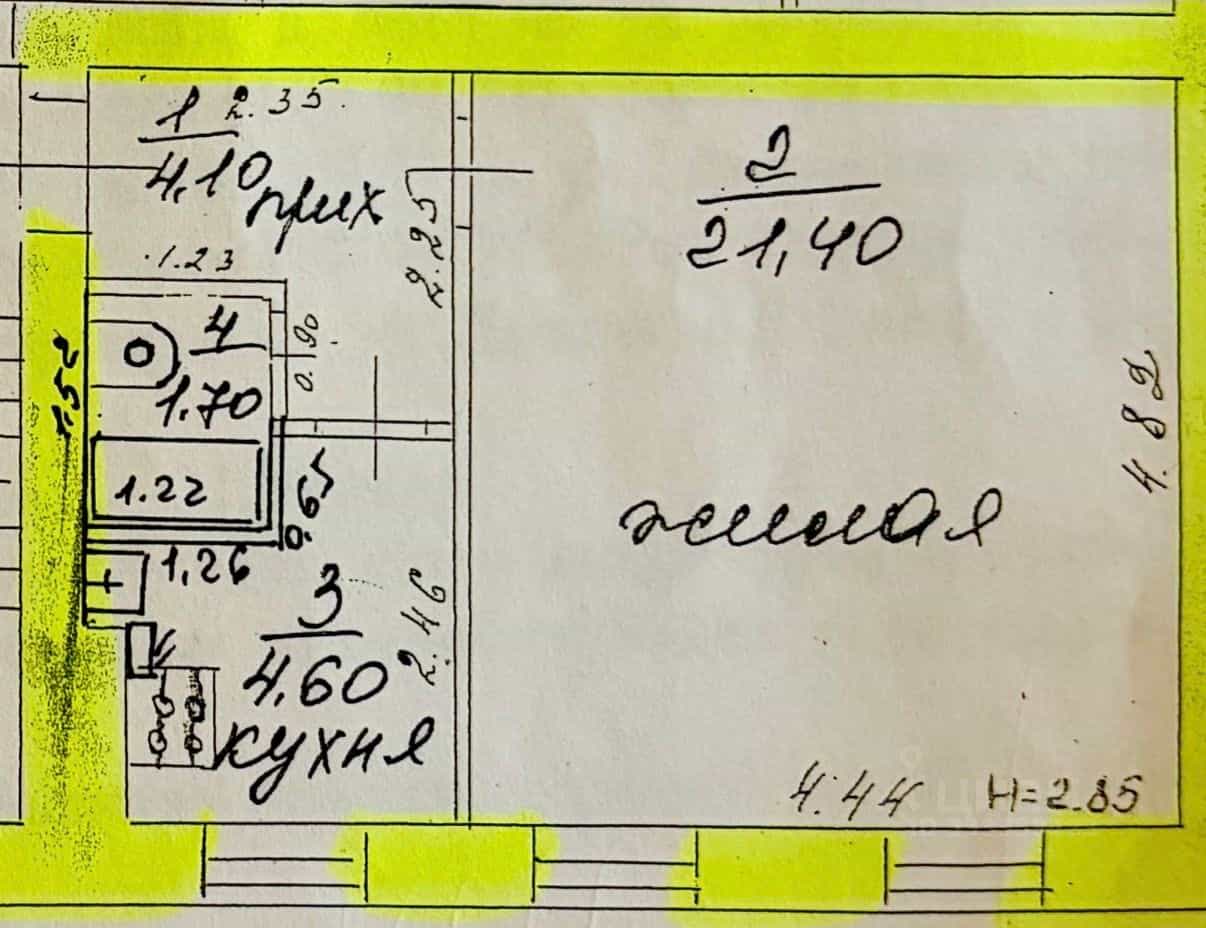 1 2.35
4,10 прих
2.25
2
21,40
1.23
4
0.90
1.70
1.52
1.22
0.65
1,26
3
4,60
2.46
кухня
жилая
4.82
4.44 H=2.85